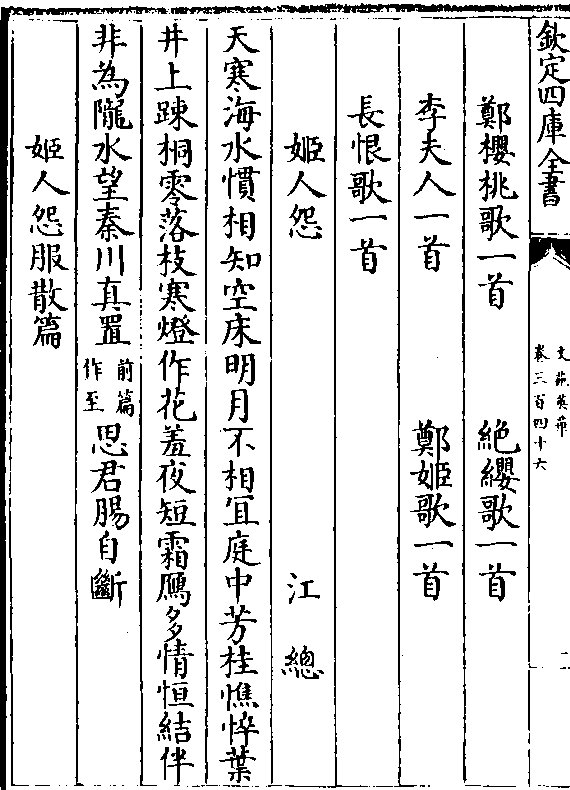 欽定四庫全書
文苑英華
卷三百四十六
二
鄭櫻桃歌一首 絶纓歌一首
李夫人一首 鄭姬歌一首
長恨歌一首
姬人怨 江總
天寒海水慣相知空床明月不相宜庭中芳桂憔悴葉
井上踈桐零落枝寒燈作花羞夜短霜鴈多情恒結伴
非為隴水望秦川真置前篇作至思君腸自斷
姬人怨服散篇